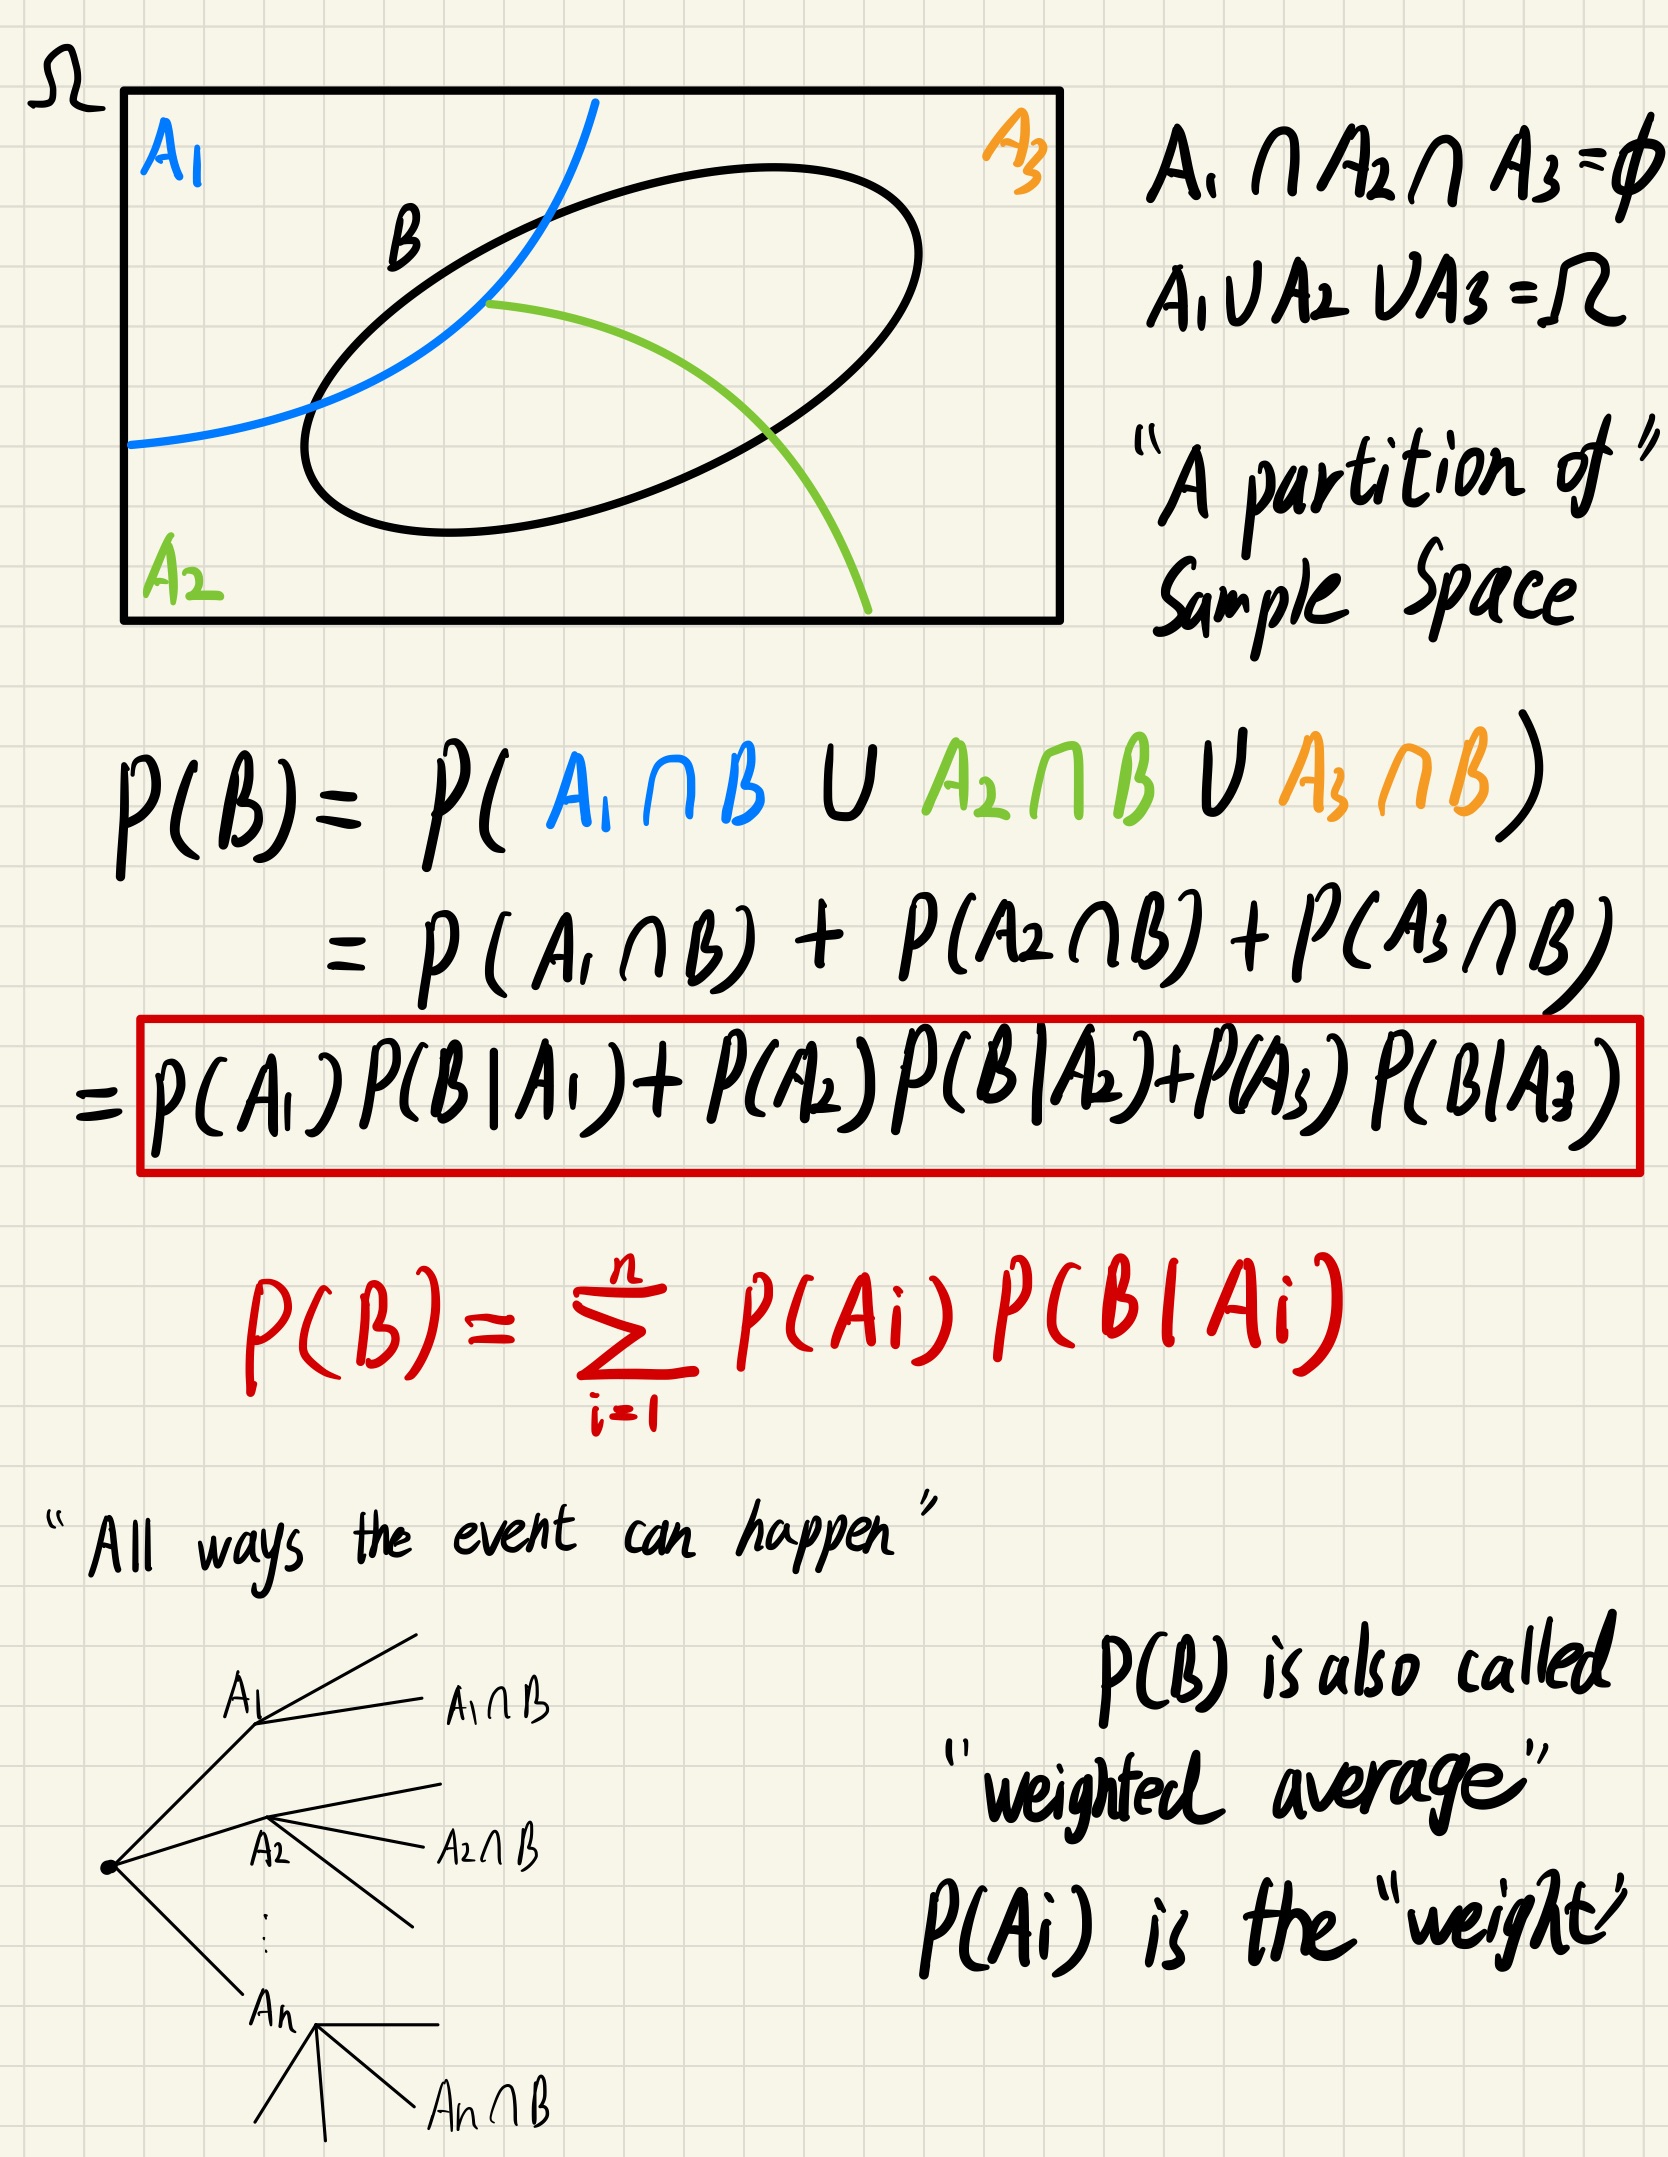 Ω
A1
A3
B
A2
A1 ∩ A2 ∩ A3 = ϕ
A1 ∪ A2 ∪ A3 = Ω
“A partition of”
Sample Space
P(B) = P( A1 ∩ B ∪ A2 ∩ B ∪ A3 ∩ B )
= P(A1 ∩ B) + P(A2 ∩ B) + P(A3 ∩ B)
= P(A1) P(B|A1) + P(A2) P(B|A2) + P(A3) P(B|A3)
P(B) = n∑i=1 P(Ai) P(B|Ai)
“All ways the event can happen”
A1
A1 ∩ B
A2
A2 ∩ B
⋮
An
An ∩ B
P(B) is also called
“weighted average”
P(Ai) is the “weight”